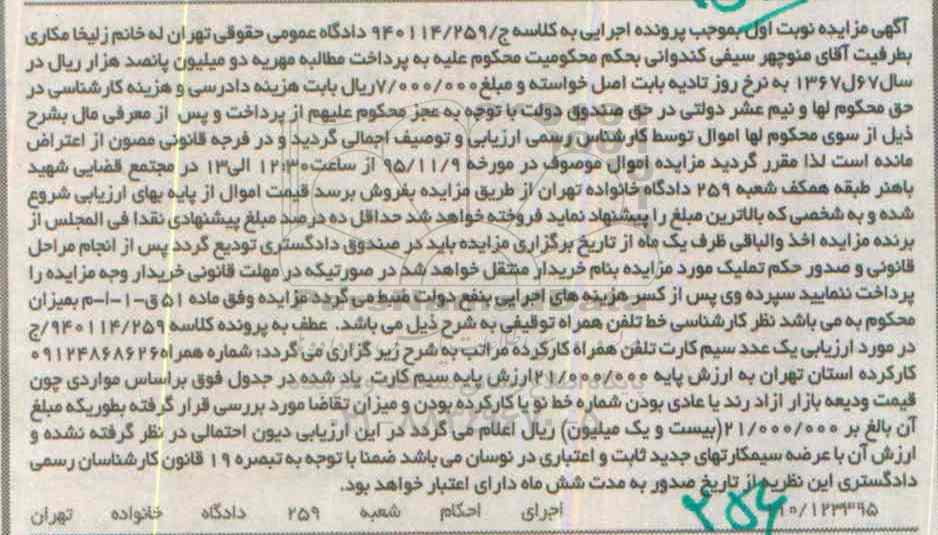 آگهی مزایده نوبت اول بموجب پرونده اجرایی به کلاسه ج/۹۴۰۱۱۴/۲۵۹ دادگاه عمومی حقوقی تهران له خانم زلیخا مکاری
بطرفیت آقای منوچهر سیفی کندوانی بحکم محکومیت محکوم علیه به پرداخت مطالبه مهریه دو میلیون پانصد هزار ریال در
سال۶۷ل۱۳۶۷ به نرخ روز تادیه بابت اصل خواسته و مبلغ۷/۰۰۰/۰۰۰ریال بابت هزینه دادرسی و هزینه کارشناسی در
حق محکوم لها و نیم عشر دولتی در حق صندوق دولت با توجه به عجز محکوم علیهم از پرداخت و پس از معرفی مال بشرح
ذیل از سوی محکوم لها اموال توسط کارشناس رسمی ارزیابی و توصیف اجمالی گردید و در فرجه قانونی مصون از اعتراض
مانده است لذا مقرر گردید مزایده اموال موصوف در مورخه ۹۵/۱۱/۹ از ساعت۱۲:۳۰ الی۱۳ در مجتمع قضایی شهید
باهنر طبقه همکف شعبه ۲۵۹ دادگاه خانواده تهران از طریق مزایده بفروش برسد قیمت اموال از پایه بهای ارزیابی شروع
شده و به شخصی که بالاترین مبلغ را پیشنهاد نماید فروخته خواهد شد حداقل ده درصد مبلغ پیشنهادی نقدا فی المجلس از
برنده مزایده اخذ والباقی ظرف یک ماه از تاریخ برگزاری مزایده باید در صندوق دادگستری تودیع گردد پس از انجام مراحل
قانونی و صدور حکم تملیک مورد مزایده بنام خریدار منتقل خواهد شد در صورتیکه در مهلت قانونی خریدار وجه مزایده را
پرداخت ننمایید سپرده وی پس از کسر هزینه های اجرایی بنفع دولت ضبط می گردد مزایده وفق ماده ۵۱ ق-۱-ا-م بمیزان
محکوم به می باشد نظر کارشناسی خط تلفن همراه توقیفی به شرح ذیل می باشد. عطف به پرونده کلاسه ۹۴۰۱۱۴/۲۵۹/ج
در مورد ارزیابی یک عدد سیم کارت تلفن همراه کارکرده مراتب به شرح زیر گزاری می گردد: شماره همراه۰۹۱۲۴۸۶۸۶۲۶
کارکرده استان تهران به ارزش پایه ۲۱/۰۰۰/۰۰۰ارزش پایه سیم کارت یاد شده در جدول فوق براساس مواردی چون
قیمت ودیعه بازار ازاد رند یا عادی بودن شماره خط نو یا کارکرده بودن و میزان تقاضا مورد بررسی قرار گرفته بطوریکه مبلغ
آن بالغ بر ۲۱/۰۰۰/۰۰۰(بیست و یک میلیون) ریال اعلام می گردد در این ارزیابی دیون احتمالی در نظر گرفته نشده و
ارزش آن با عرضه سیمکارتهای جدید ثابت و اعتباری در نوسان می باشد ضمنا با توجه به تبصره ۱۹ قانون کارشناسان رسمی
دادگستری این نظریه از تاریخ صدور به مدت شش ماه دارای اعتبار خواهد بود.
۱۰/۱۲۳۳۹۵ اجرای احکام شعبه ۲۵۹ دادگاه خانواده تهران